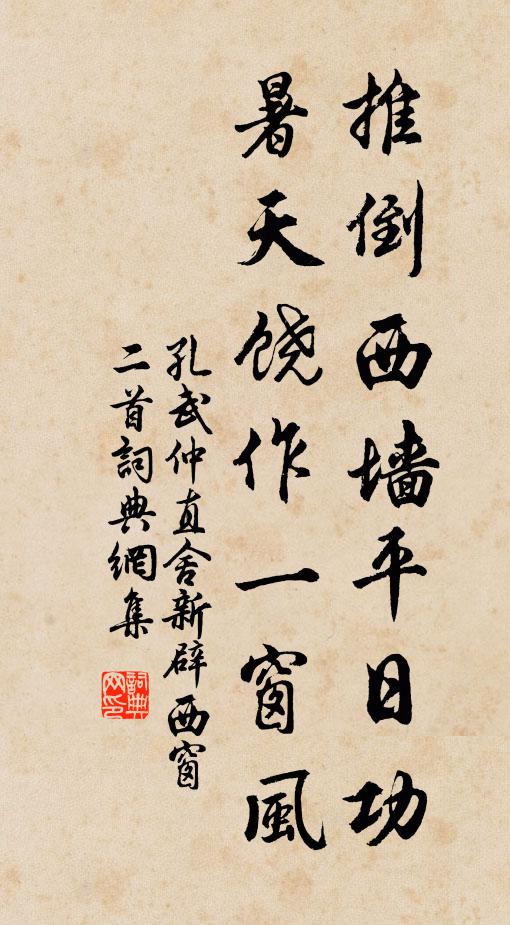 推倒西墙平日功
暑天饶作一窗風
孔武仲直舍新辟西窗
二首詞典網集
詞典网印